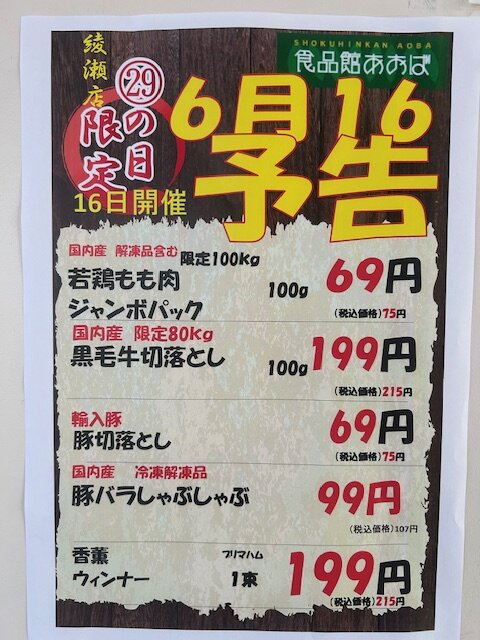 綾瀬店
限定
㉙の日
16日開催
SHOKUHINKAN AOBA
食品館あおば
6月16
予告
国内産 解凍品含む 限定100Kg
若鶏もも肉
ジャンボパック
100g 69円
(税込価格)75円
国内産 限定80Kg
黒毛牛切落とし
100g 199円
(税込価格)215円
輸入豚
豚切落とし
69円
(税込価格)75円
国内産 冷凍解凍品
豚バラしゃぶしゃぶ
99円
(税込価格)107円
香薫 プリマハム
ウィンナー 1束 199円
(税込価格)215円